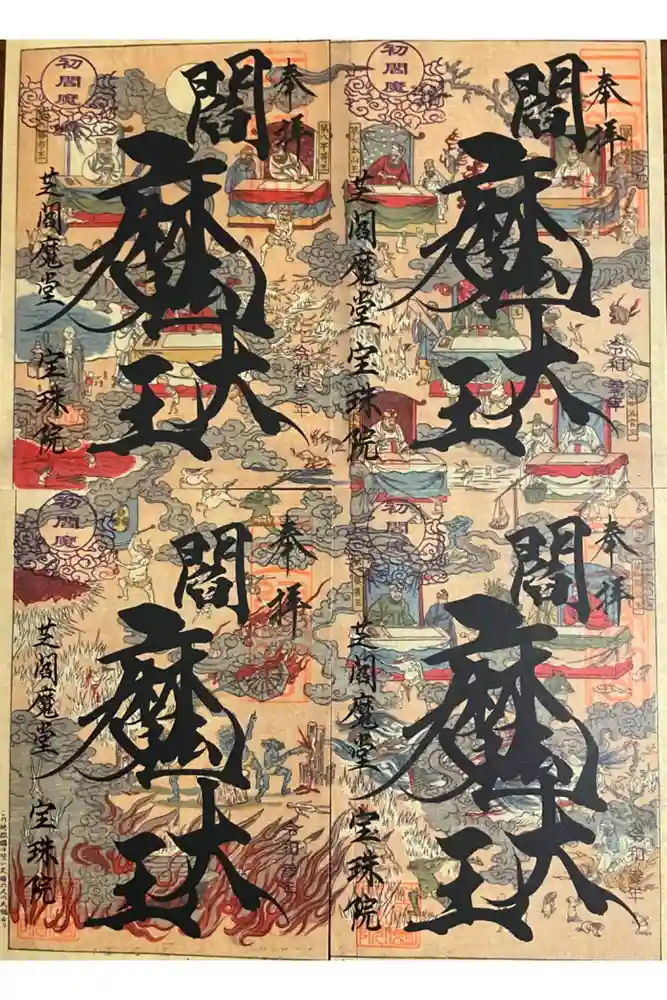 奉拝
閻魔大王
初閻魔
令和参年
芝閻魔堂 宝珠院
奉拝
閻魔大王
初閻魔
令和参年
芝閻魔堂 宝珠院
奉拝
閻魔大王
初閻魔
令和参年
芝閻魔堂 宝珠院
奉拝
閻魔大王
初閻魔
令和参年
芝閻魔堂 宝珠院